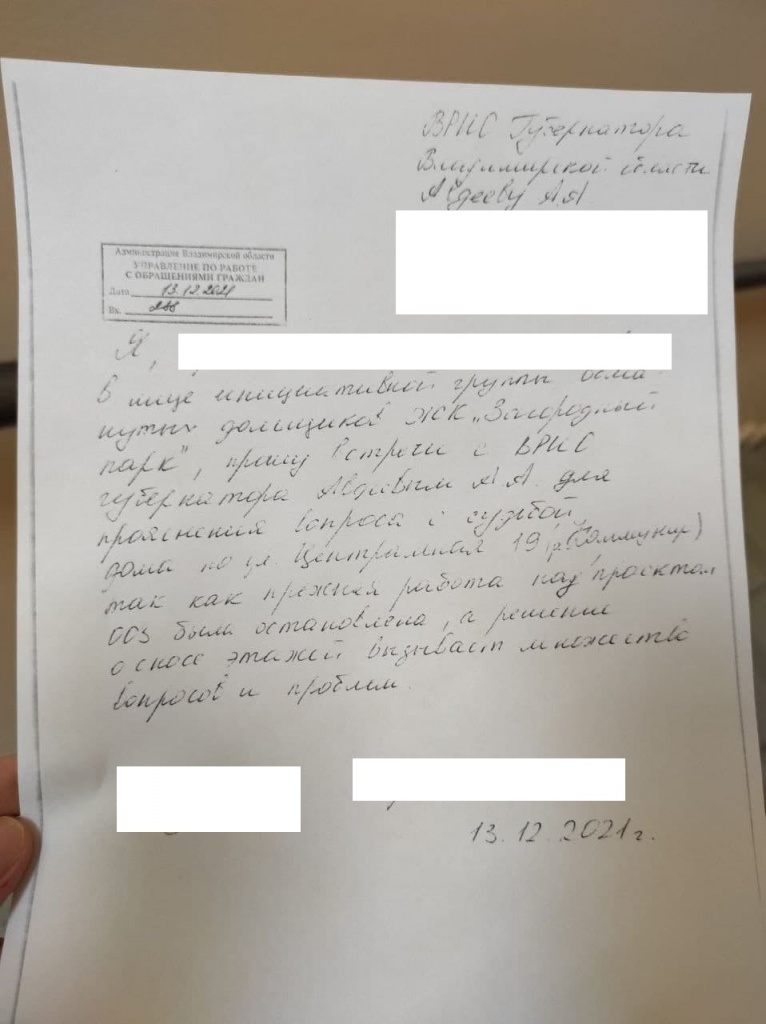 ВРИС Губернатора
Владимирской области
Авдееву А.А
Администрация Владимирской области
УПРАВЛЕНИЕ ПО РАБОТЕ
С ОБРАЩЕНИЯМИ ГРАЖДАН
Дата 13.12.2021
Вх. 288
Я,
в лице инициативной группы обма-
нутых дольщиков ЖК „Загородный
парк", прошу встречи с ВРИС
губернатора Авдеевым А.А. для
прояснения вопроса с судьбой
дома по ул. Центральная 19 (р. Коммунар)
так как прежняя работа над проектом
003 была остановлена, а решение
о сносе этажей вызывает множество
вопросов и проблем.
13.12.2021г.